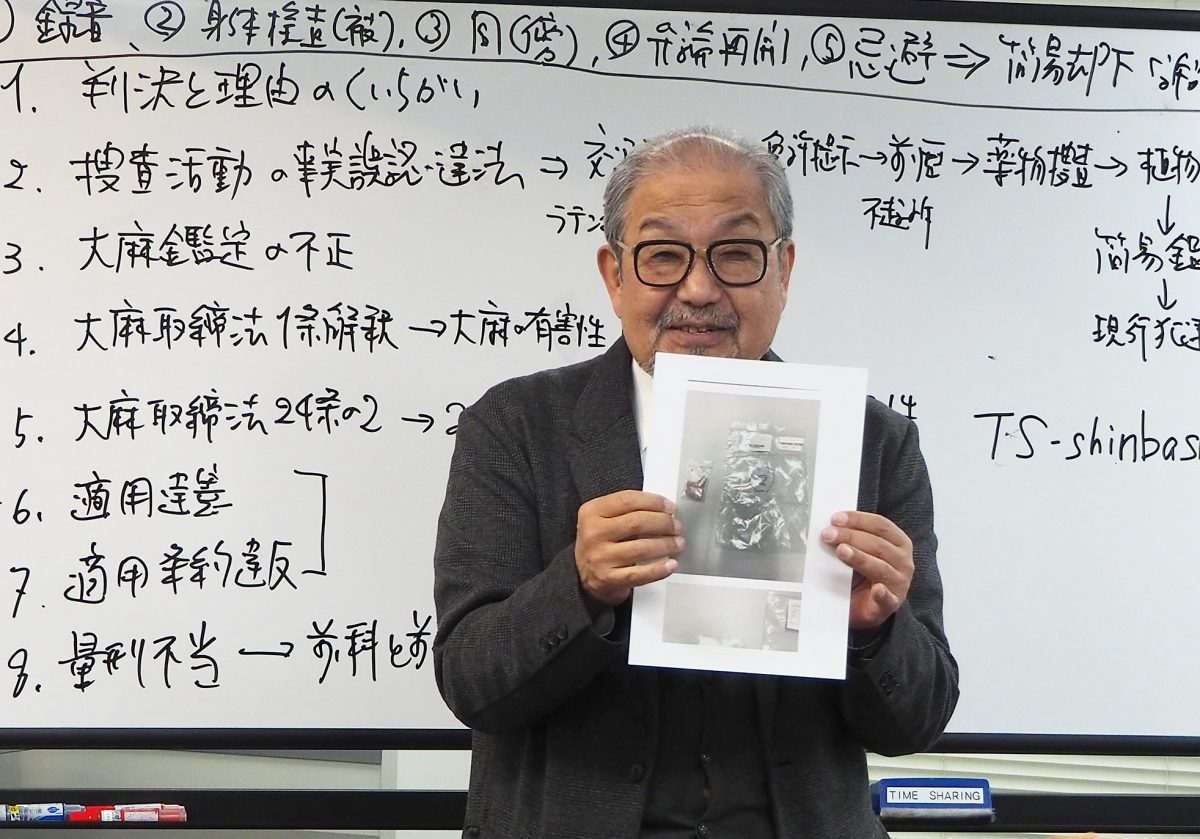 ① 録音、② 身体検査(被)、③ 同(傍)、④ 弁論再開、⑤ 忌避⇒簡易却下
1. 判決と理由のくいちがい
2. 捜査活動の事実誤認・違法⇒ 提示→前歴→薬物捜査→植物
不起訴
↓
3. 大麻鑑定の不正
簡易鑑
↓
4. 大麻取締法1条解釈→大麻の有害性
現行犯逮
5. 大麻取締法24条の2→ 性
T.S-shinbas
6. 適用違憲
7. 適用条約違反
8. 量刑不当→前科と前
TIME SHARING